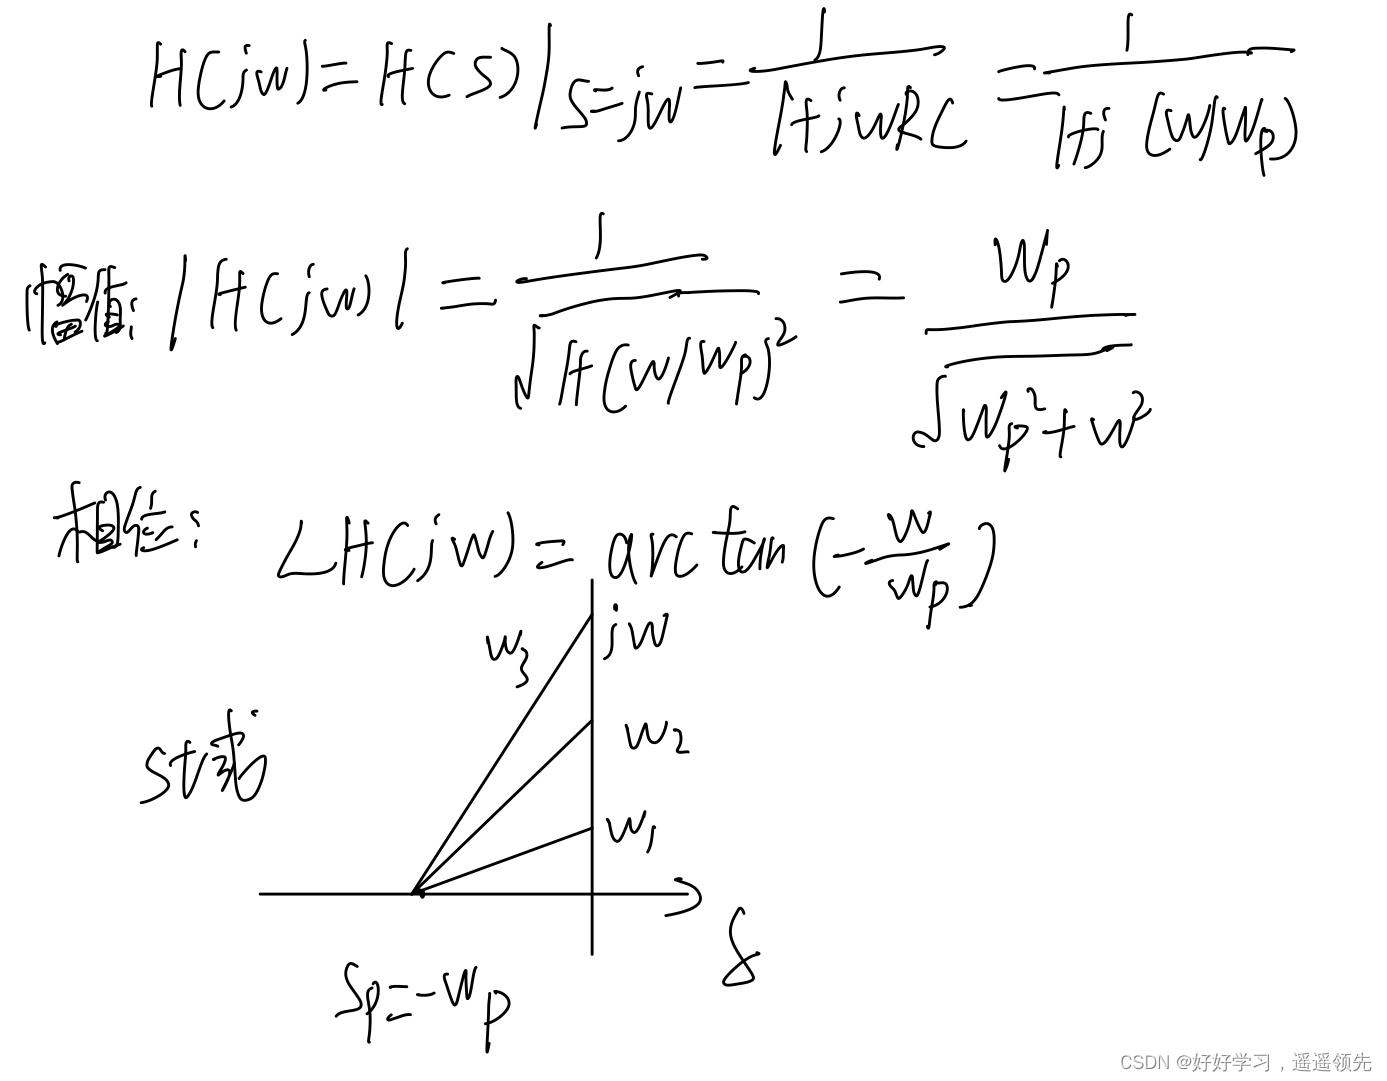 H(jw)=H(S)|S=jw = 1/(1+jwRC) = 1/(1+j(w/wp))
幅值: |H(jw)| = 1/√(1+(w/wp)²) = wp/√(wp²+w²)
相位: ∠H(jw) = arctan(-w/wp)
jw
w3
w2
S域
w1
δ
Sp=-wp
CSDN @好好学习，遥遥领先